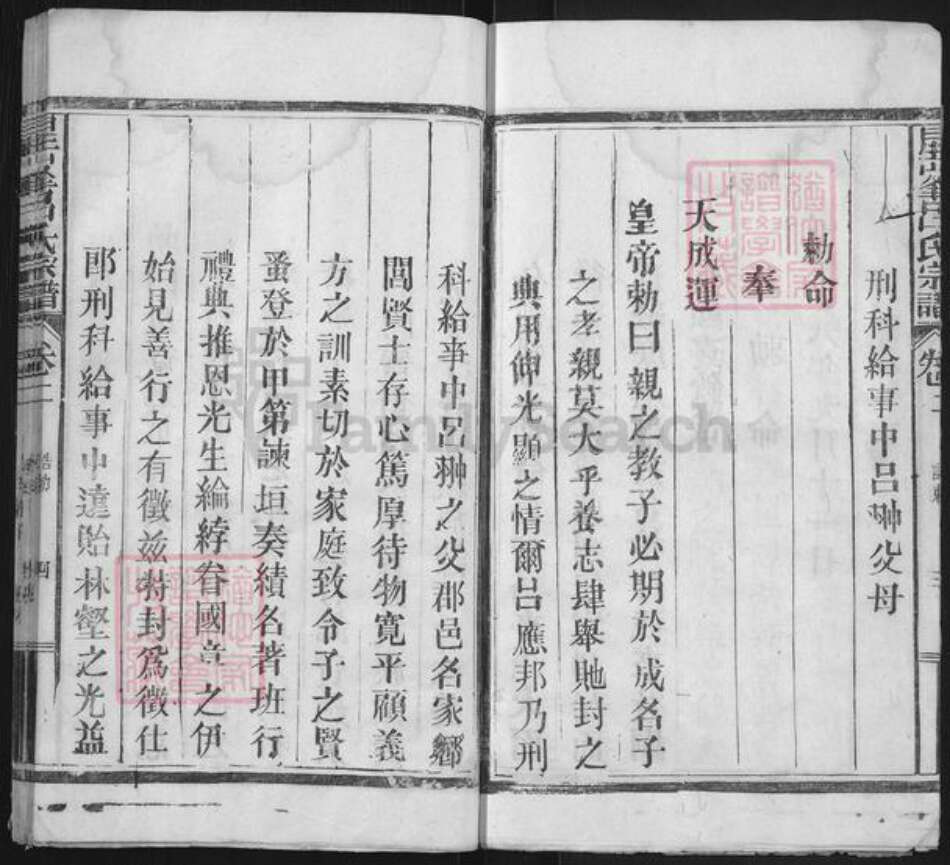 刑科給事中呂翀父母
勅命
奉
天成運
皇帝勅曰親之教子必期於成名子
之孝親莫大乎養志肆舉貤封之
典用伸光顯之情爾呂應邦乃刑
科給事中呂翀之父郡邑名家鄉
閭賢士存心篤厚待物寬平顧義
方之訓素切於家庭致令子之賢
蚤登於甲第諫垣奏績名著班行
禮典推恩光生綸綍眷國章之伊
始見善行之有徵兹特封為徵仕
郎刑科給事中達貽林壑之光益
呂氏宗譜
卷二
FamilySearch